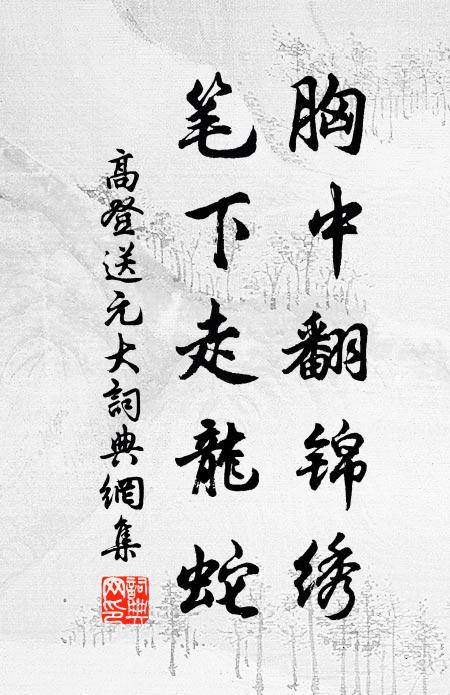 胸中翻锦绣
笔下走龍蛇
高登送元大詞典網集
詞典网印